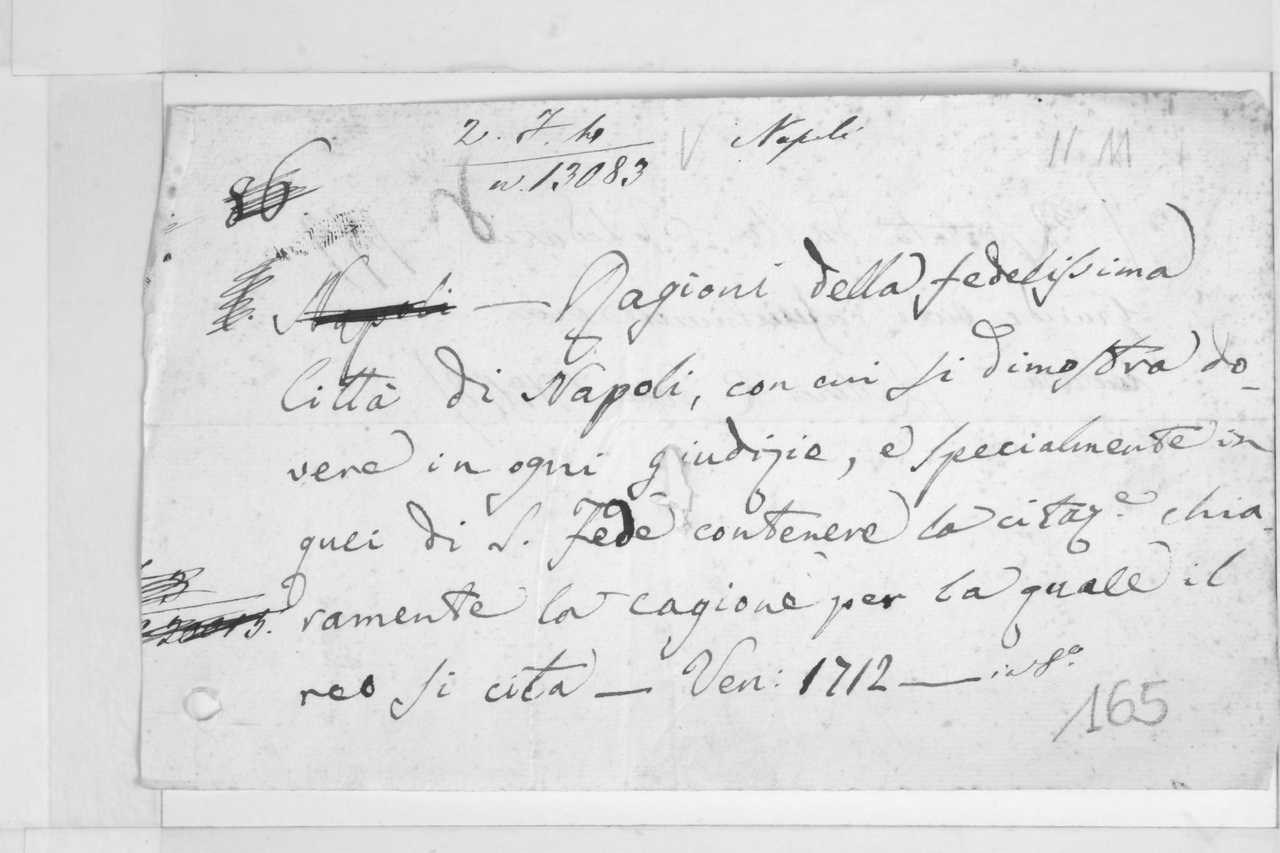 2. F. 4 Napoli
n. 13083
Napoli — Ragioni della fedelissima
Città di Napoli, con cui si dimostra do-
vere in ogni giudizio, e specialmente in
quei di S. Fede contenere la citazᵉ chia-
ramente la cagione per la quale il
reo si cita — Ven: 1712 — in 8º
165